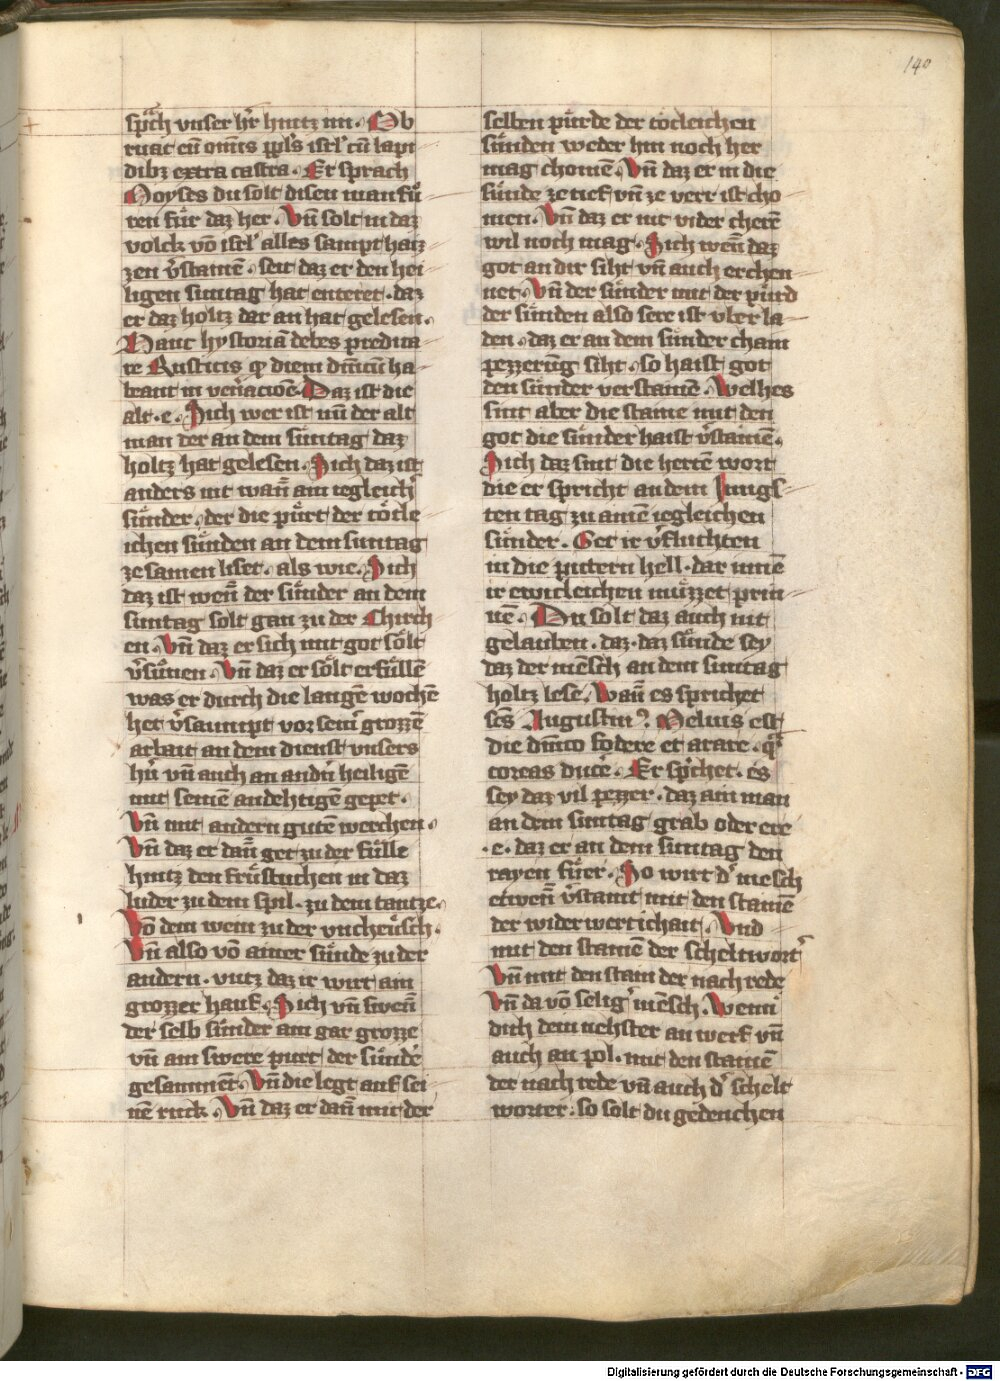 140
sprach vnser hr̄ hintz im. Ob
ruat eū om̄is ppl's isrl' cū lapi
dibz extra castra. Er sprach
Moyses du solt disen man fu̇
ren fu̇r daz her. Vn̄ solt in daz
volck vō isrl' alles sampt haiz
zen v̄stainē. seit daz er den hei
ligen suntag hat enteret. daz
er daz holtz dar an hat gelesen.
Hanc hystoriā debes predica
re Rusticis q diem dn̄icū ha
beant in ven̄acōe. Daz ist die
alt. e. Sich wer ist nu̇ der alt
man der an dem suntag daz
holtz hat gelesen. Sich daz ist
anders nit wan̄ ain iegleich'
su̇nder. der die pu̇rt der to̍tle
ichen su̇nden an dem suntag
zesamen liset. als wie. Sich
daz ist wen̄ der su̇nder an dem
suntag solt gan zu der Chirch
en. Vn̄ daz er sich mit got so̍lt
v̄su̇nen. Vn̄ daz er so̍lt erfu̇llē
was er durch die langē wochē
het v̄saumpt vor sein' grozzē
arbait an dem dienst vnsers
hn̄ vn̄ auch an andn̄ heiligē
mit seinē andehtigē gepet.
Vn̄ mit andern gutē werchen.
Vn̄ daz er dan̄ get zu der fu̇lle
hintz den fru̇stuchen in daz
luder zu dem spil. zu dem tantze.
Vō dem wein zu der vncheu̇sch.
Vn̄ also vō ainer su̇nde zu der
andern. vntz daz ir wirt ain
grozzer hauf. Sich vn̄ swen̄
der selb su̇nder ain gar grozze
vn̄ ain swere purt der su̇ndē
gesamnet. Vn̄ die legt auf sei
nē ruck. Vn̄ daz er dan̄ mit der
selben pu̇rde der tötleichen
su̇nden weder hin noch her
mag chomē. Vn̄ daz er in die
su̇nde ze tief vn̄ ze verr ist cho
men. Vn̄ daz er nit wider cherē
wil noch mag. Sich wen̄ daz
got an dir siht vn̄ auch erchen
net. Vn̄ der su̇nder mit der pu̇rd
der su̇nden also sere ist vber la
den. daz er an dem su̇nder chain
pezzerūg siht. so haist got
den su̇nder verstainē. Welhes
sint aber die staine mit den
got die su̇nder haist v̄stainē.
Sich daz sint die hertē wort
die er spricht an dem Jungs
ten tag zu ainē iegleichen
su̇nder. Get ir v̄fluchten
in die pittern hell. dar innē
ir ewicleichen mu̇zzet prin
nē. Du solt daz auch nit
gelauben. daz. daz su̇nde sey
daz der mēsch an dem suntag
holtz lese. Wan̄ es sprichet
scs̄ Augustin9. Melius est
die dn̄ico fodere et arare. q̄
coreas ducē. Er sp'chet. es
sey daz vil pezzer. daz ain man
an dem suntag grab oder ere
.e. daz er an dem suntag den
rayen fu̇er. So wirt d' mēsch
etwen̄ v̄staint mit den stainē
der wider wertichait. Vnd
mit den stainē der scheltwort'
Vn̄ mit den stain der nach rede
Vn̄ da vō selig' mēsch. Wenn
dich dein nehster an werf vn̄
auch an pol. mit den stainē
der nach rede vn̄ auch d' schelt
worter. so solt du gedenchen
Digitalisierung gefördert durch die Deutsche Forschungsgemeinschaft - DFG